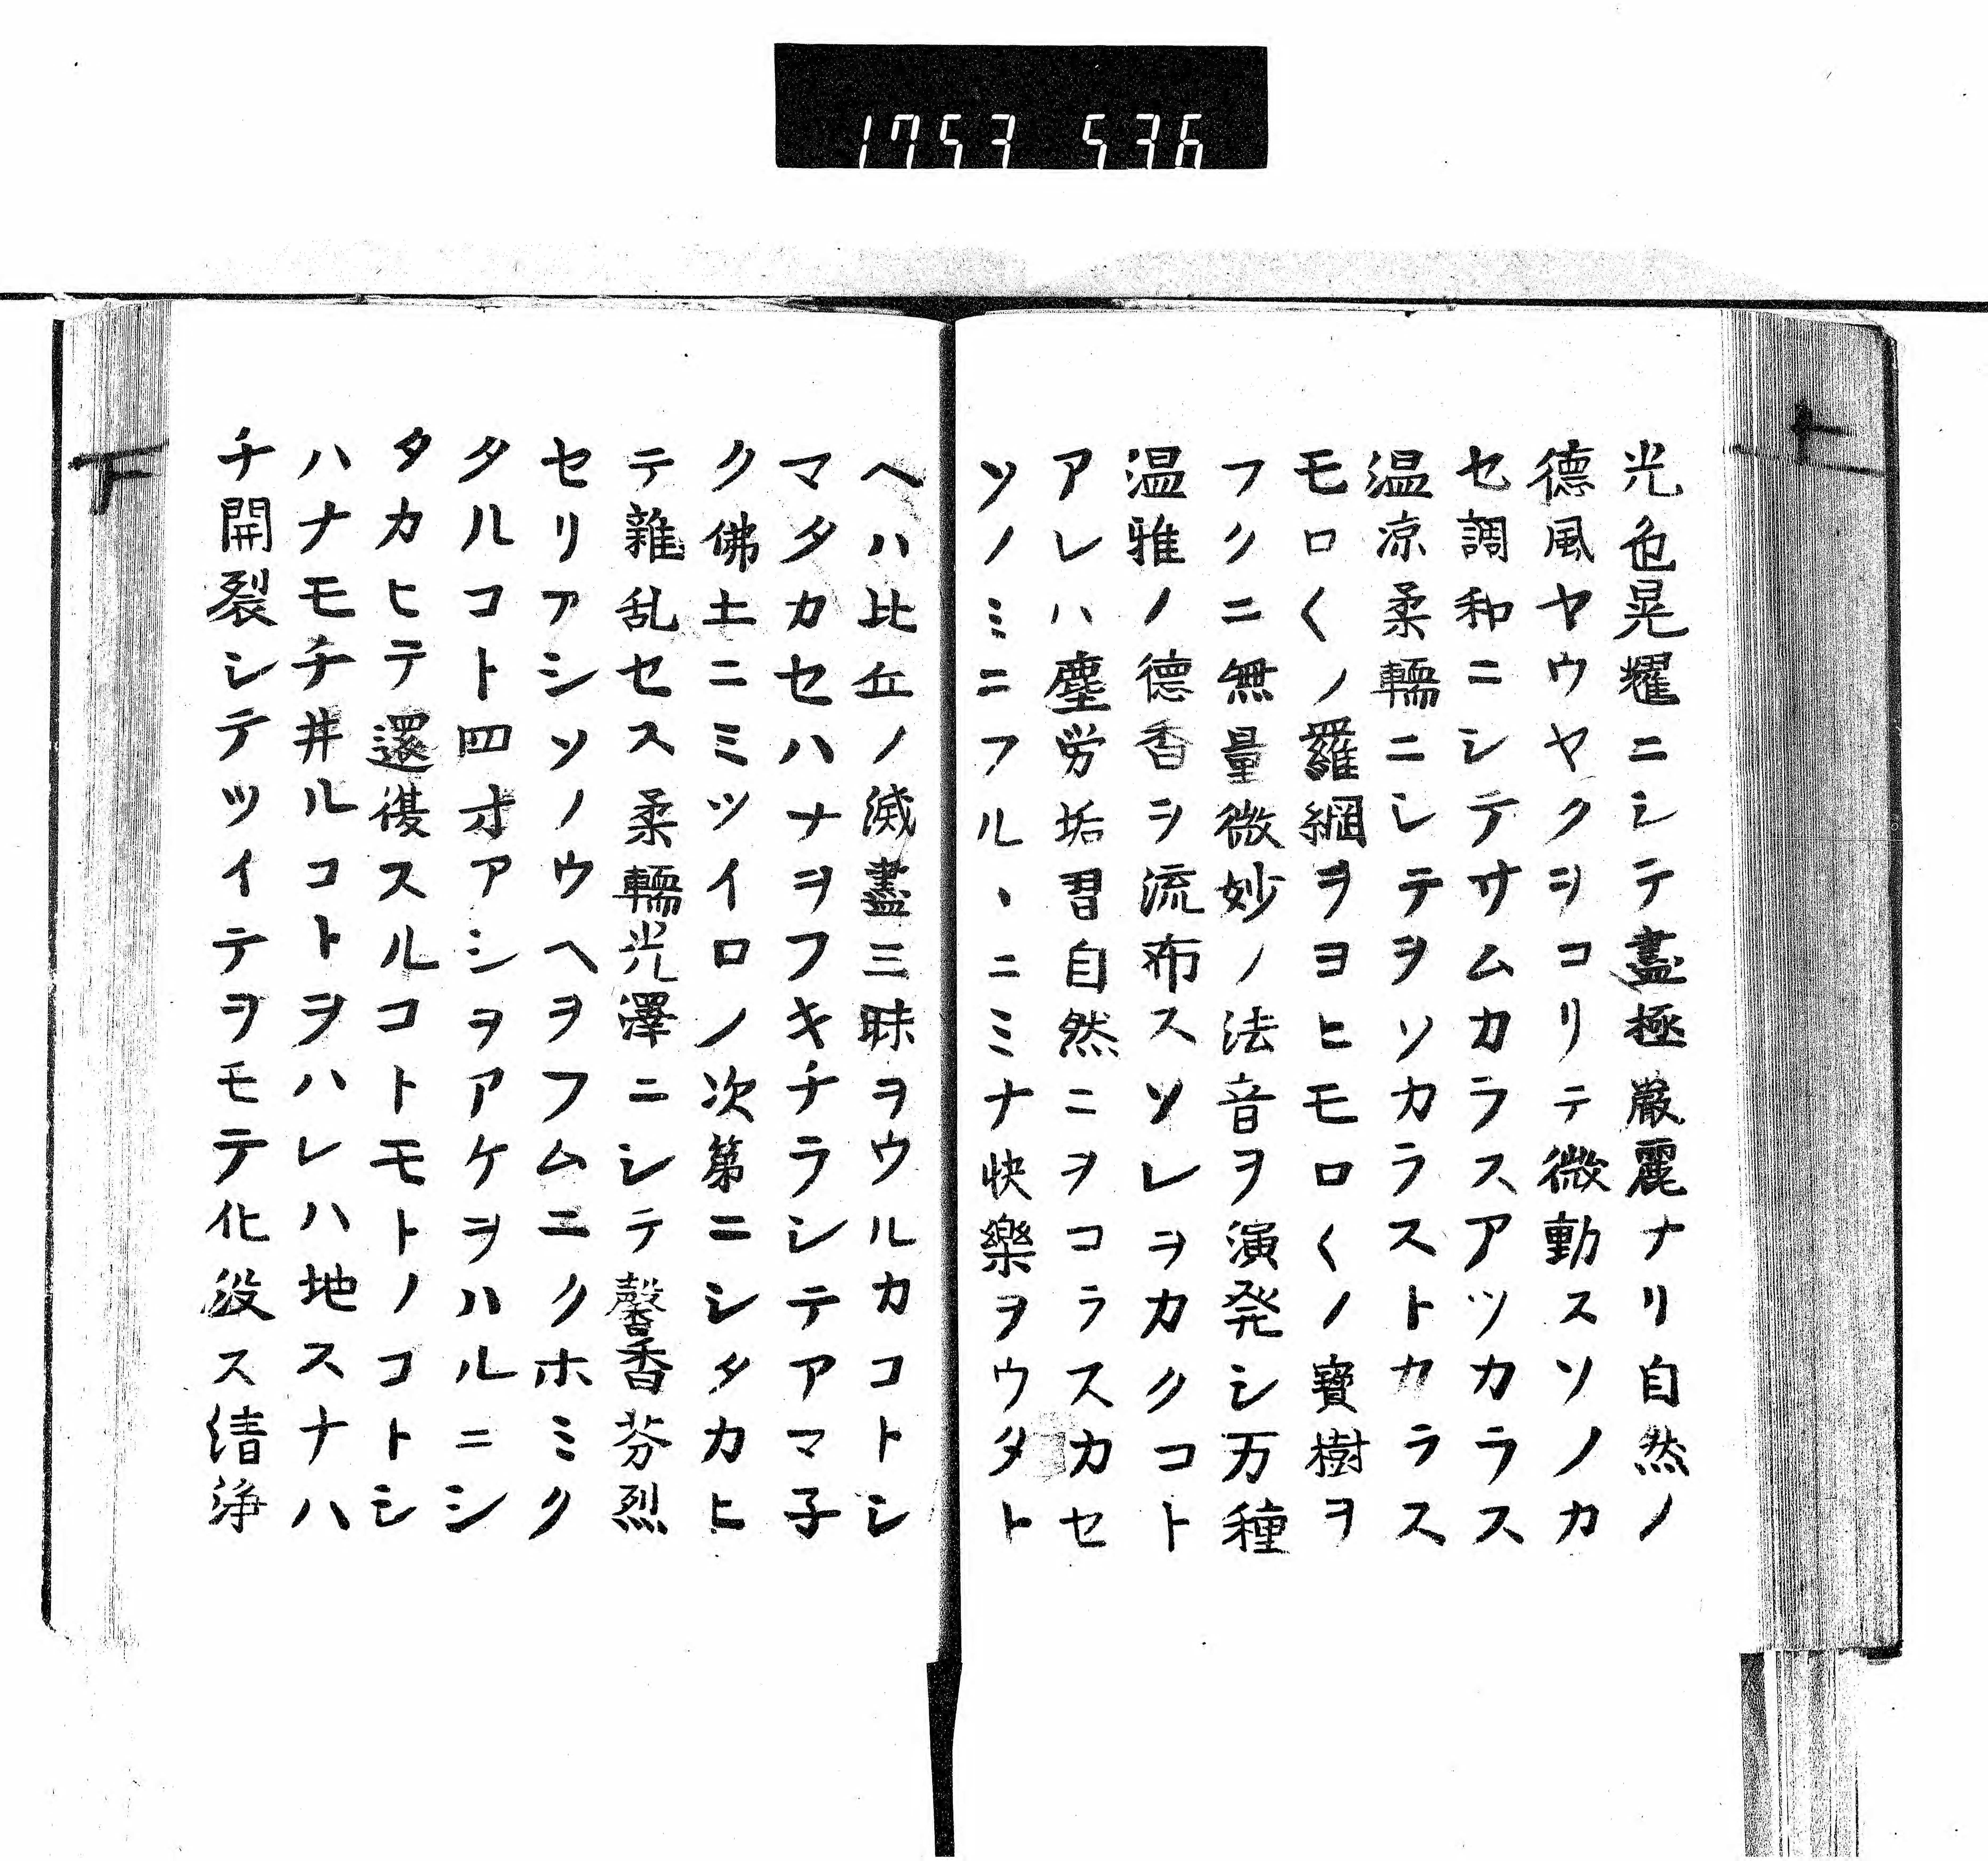 1753 536
上
光色晃耀ニシテ盡極嚴麗ナリ自然ノ
德風ヤウヤクヲコリテ微動スソノカ
セ調和ニシテサムカラスアツカラス
温凉柔輭ニシテヲソカラストカラス
モロ〱ノ羅網ヲヨヒモロ〱ノ寶樹ヲ
フクニ無量微妙ノ法音ヲ演発シ万種
温雅ノ德香ヲ流布スソレヲカクコト
アレハ塵労垢習自然ニヲコラスカセ
ソノミニフルヽニミナ快樂ヲウタト
ヘハ比丘ノ滅盡三昧ヲウルカコトシ
マタカセハナヲフキチラシテアマ子
ク佛土ニミツイロノ次第ニシタカヒ
テ雜乱セス柔輭光澤ニシテ馨香芬烈
セリアシソノウヘヲフムニクホミク
タルコト四寸アシヲアケヲハルニシ
タカヒテ還復スルコトモトノコトシ
ハナモチ井ルコトヲハレハ地スナハ
チ開裂シテツイテヲモテ化没ス清浄
下